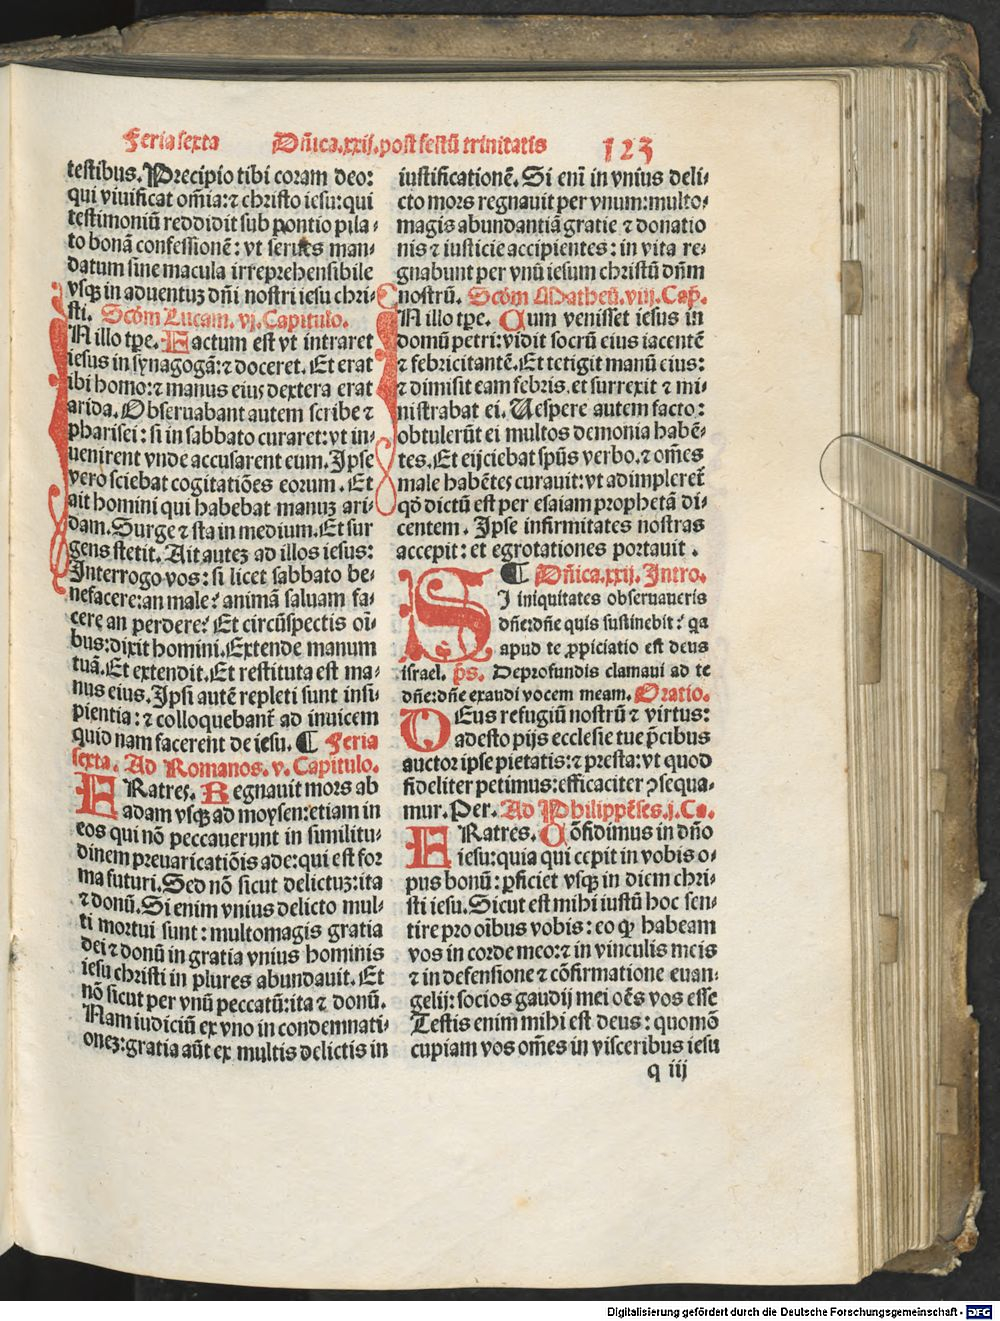 Feria sexta Dñica.xxij.post festū trinitatis 123
testibus. Precipio tibi coram deo:
qui viuificat om̄ia: ⁊ christo iesu: qui
testimoniū reddidit sub pontio pila-
to bonā confessionē: vt serues man-
datum sine macula irreprehensibile
vsqꝫ in aduentuꝫ dn̄i nostri iesu chri-
sti. Scḋm Lucam. vj. Capitulo.
IN illo tꝑe. Factum est vt intraret
iesus in synagogā: ⁊ doceret. Et erat
ibi homo: ⁊ manus eius dextera erat
arida. Obseruabant autem scribe ⁊
pharisei: si in sabbato curaret: vt in-
uenirent vnde accusarent eum. Ipse
vero sciebat cogitatiōes eorum. Et
ait homini qui habebat manuꝫ ari-
dam. Surge ⁊ sta in medium. Et sur
gens stetit. Ait auteꝫ ad illos iesus:
Interrogo vos: si licet sabbato be-
nefacere: an male? animā saluam fa-
cere an perdere? Et circūspectis oī-
bus: dixit homini. Extende manum
tuā. Et extendit. Et restituta est ma-
nus eius. Ipsi autē repleti sunt insi-
pientia: ⁊ colloquebant̄ ad inuicem
quid nam facerent de iesu. ¶ Feria
sexta. Ad Romanos. v. Capitulo.
FRatres. Regnauit mors ab
adam vsqꝫ ad moysen: etiam in
eos qui nō peccauerunt in similitu-
dinem preuaricatiōis ade: qui est for
ma futuri. Sed nō sicut delictuꝫ: ita
⁊ donū. Si enim vnius delicto mul-
ti mortui sunt: multomagis gratia
dei ⁊ donū in gratia vnius hominis
iesu christi in plures abundauit. Et
nō sicut per vnū peccatū: ita ⁊ donū.
Nam iudiciū ex vno in condemnati-
oneꝫ: gratia aūt ex multis delictis in
iustificationē. Si eni in vnius deli-
cto mors regnauit per vnum: multo-
magis abundantiā gratie ⁊ donatio
nis ⁊ iusticie accipientes: in vita re-
gnabunt per vnū iesum christū dn̄m
nostrū. Scḋm Matheū. viij. Cap̄.
IN illo tꝑe. Cum venisset iesus in
domū petri: vidit socrū eius iacentē
⁊ febricitantē. Et tetigit manū eius:
⁊ dimisit eam febris. et surrexit ⁊ mi-
nistrabat ei. Uespere autem facto:
obtulerūt ei multos demonia habē-
tes. Et eijciebat spūs verbo. ⁊ om̄es
male habētes curauit: vt adimpleret̄
qḋ dictū est per esaiam prophetā di-
centem. Ipse infirmitates nostras
accepit: et egrotationes portauit.
¶ Dñica.xxij. Intro.
SI iniquitates obseruaueris
dn̄e: dn̄e quis sustinebit? qa
apud te ꝓpiciatio est deus
israel. p̄s. De profundis clamaui ad te
dn̄e: dn̄e exaudi vocem meam. Oratio.
DEus refugiū nostrū ⁊ virtus:
adesto pijs ecclesie tue p̄cibus
auctor ipse pietatis: ⁊ presta: vt quod
fideliter petimus: efficaciter ↄsequa-
mur. Per. Ad Philippēses. j. Ca.
FRatres. Cōfidimus in dn̄o
iesu: quia qui cepit in vobis o-
pus bonū: ꝑficiet vsqꝫ in diem chri-
sti iesu. Sicut est mihi iustū hoc sen-
tire pro oībus vobis: eo ꝙ habeam
vos in corde meo: ⁊ in vinculis meis
⁊ in defensione ⁊ cōfirmatione euan-
gelij: socios gaudij mei oēs vos esse
Testis enim mihi est deus: quomō
cupiam vos om̄es in visceribus iesu
q iij
Digitalisierung gefördert durch die Deutsche Forschungsgemeinschaft - DFG